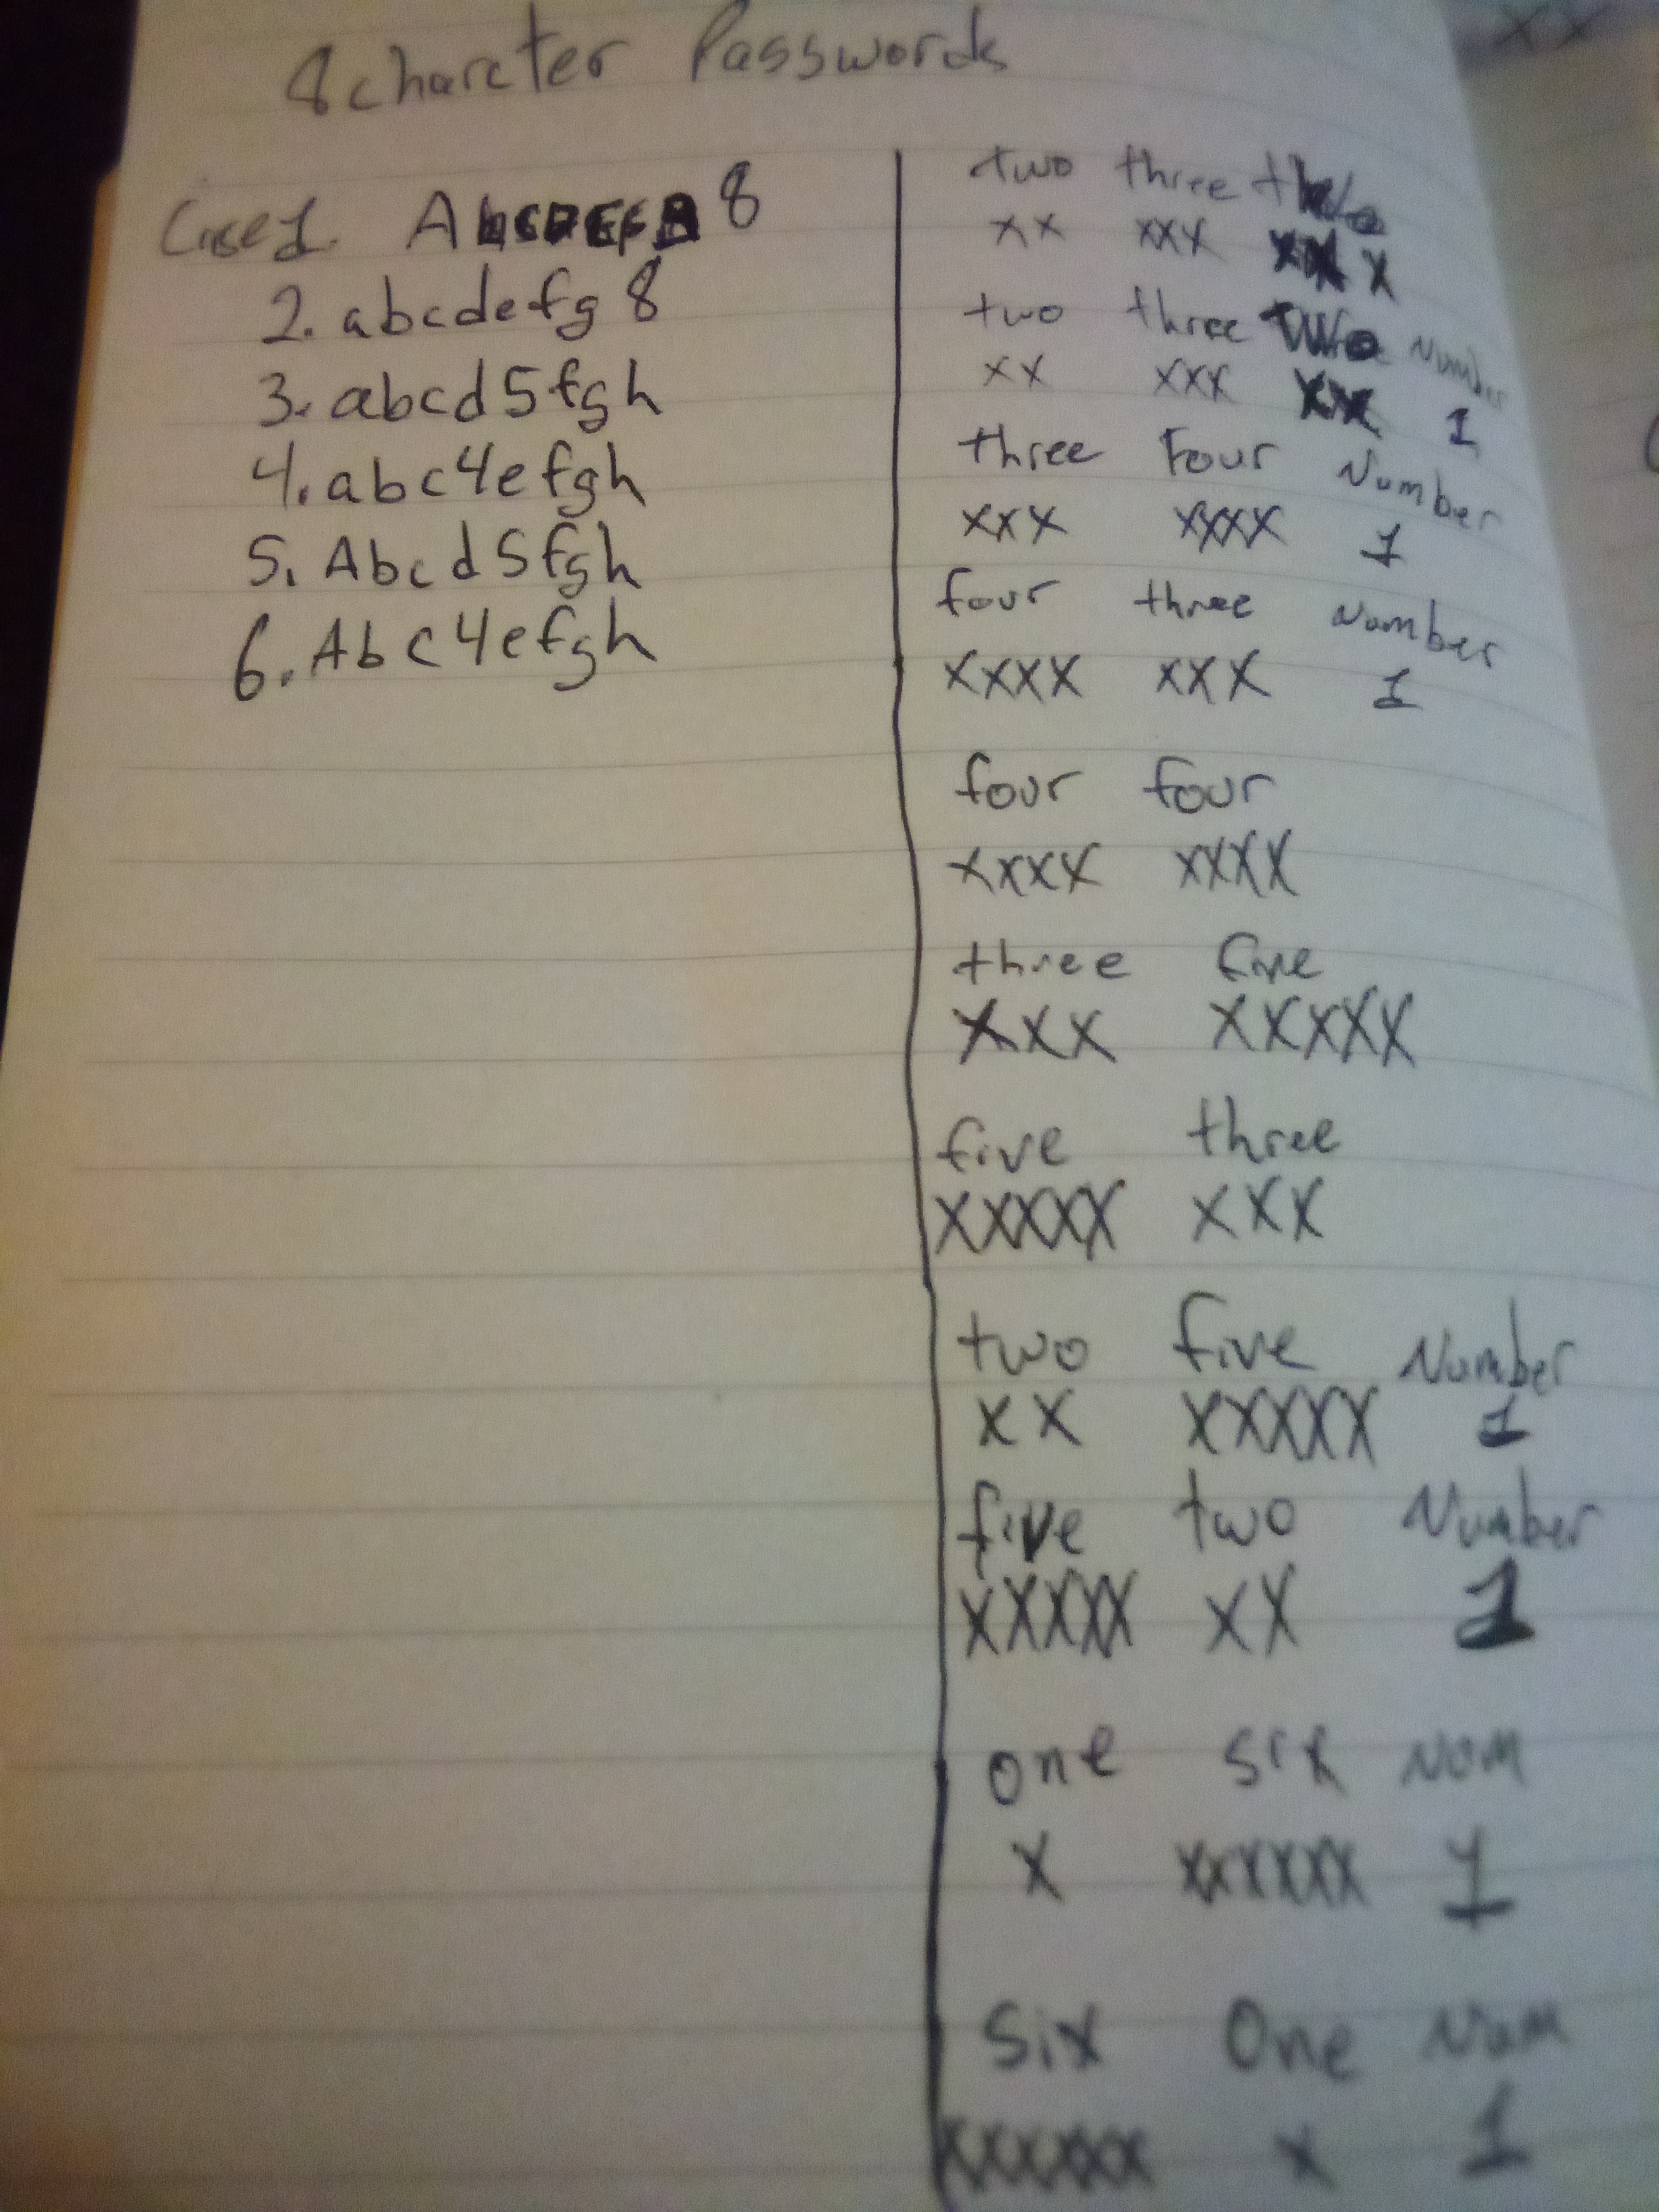 8 charcter Passwords
Case 1. A 8
2. abcdefg8
3. abcd5fgh
4. abc4efgh
5. Abcd5fgh
6. Abc4efgh
two three
xx xxx x
two three Two Number
xx xxx xx 1
three Four Number
xxx xxxx 1
four three Number
xxxx xxx 1
four four
xxxx xxxx
three five
xxx xxxxx
five three
xxxxx xxx
two five Number
xx xxxxx 1
five two Number
xxxxx xx 1
one six Num
x xxxxxx 1
Six One Num
xxxxxx x 1
xx